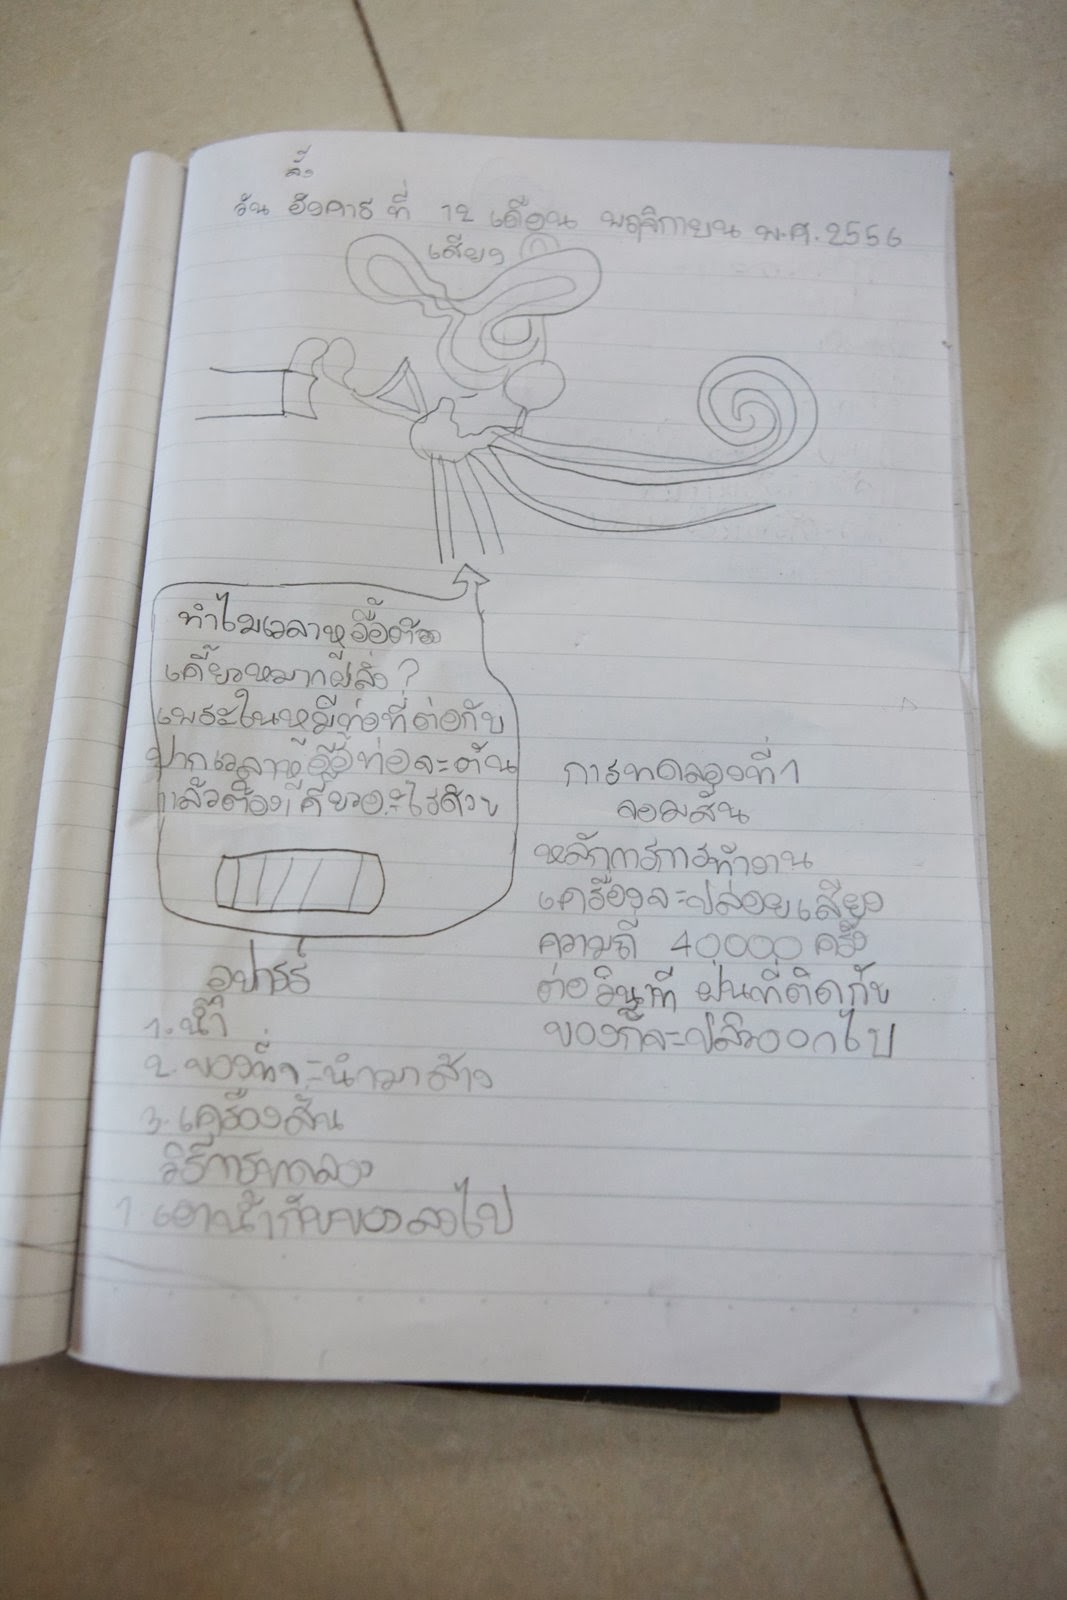 สิ่ง
วัน อังคาร ที่ 12 เดือน พฤจิกายน พ.ศ.2556
เสียง
ทำไมเวลาหูอื้อต้อง
เคี้ยวหมากฝรั่ง ?
เพระในหูมีท่อที่ต่อกับ
ปากเวลาหูอื้อท่อจะตัน
แล้วต้องเคี้ยวอะไรด้วย
การทดลองที่ 1
จอมสั่น
หลักการการทำงาน
เครื่องจะปล่อยเสียง
ความถี่ 40,000 ครั้ง
ต่อ วินาที ฝุ่นที่ติดกับ
ของก็จะปลิวออกไป
อุปกรร์
1. น้ำ
2. ของที่จะนำมาล้าง
3. เครื่องสั่น
วิธีการทดลอง
1 เอาน้ำกับของลงไป